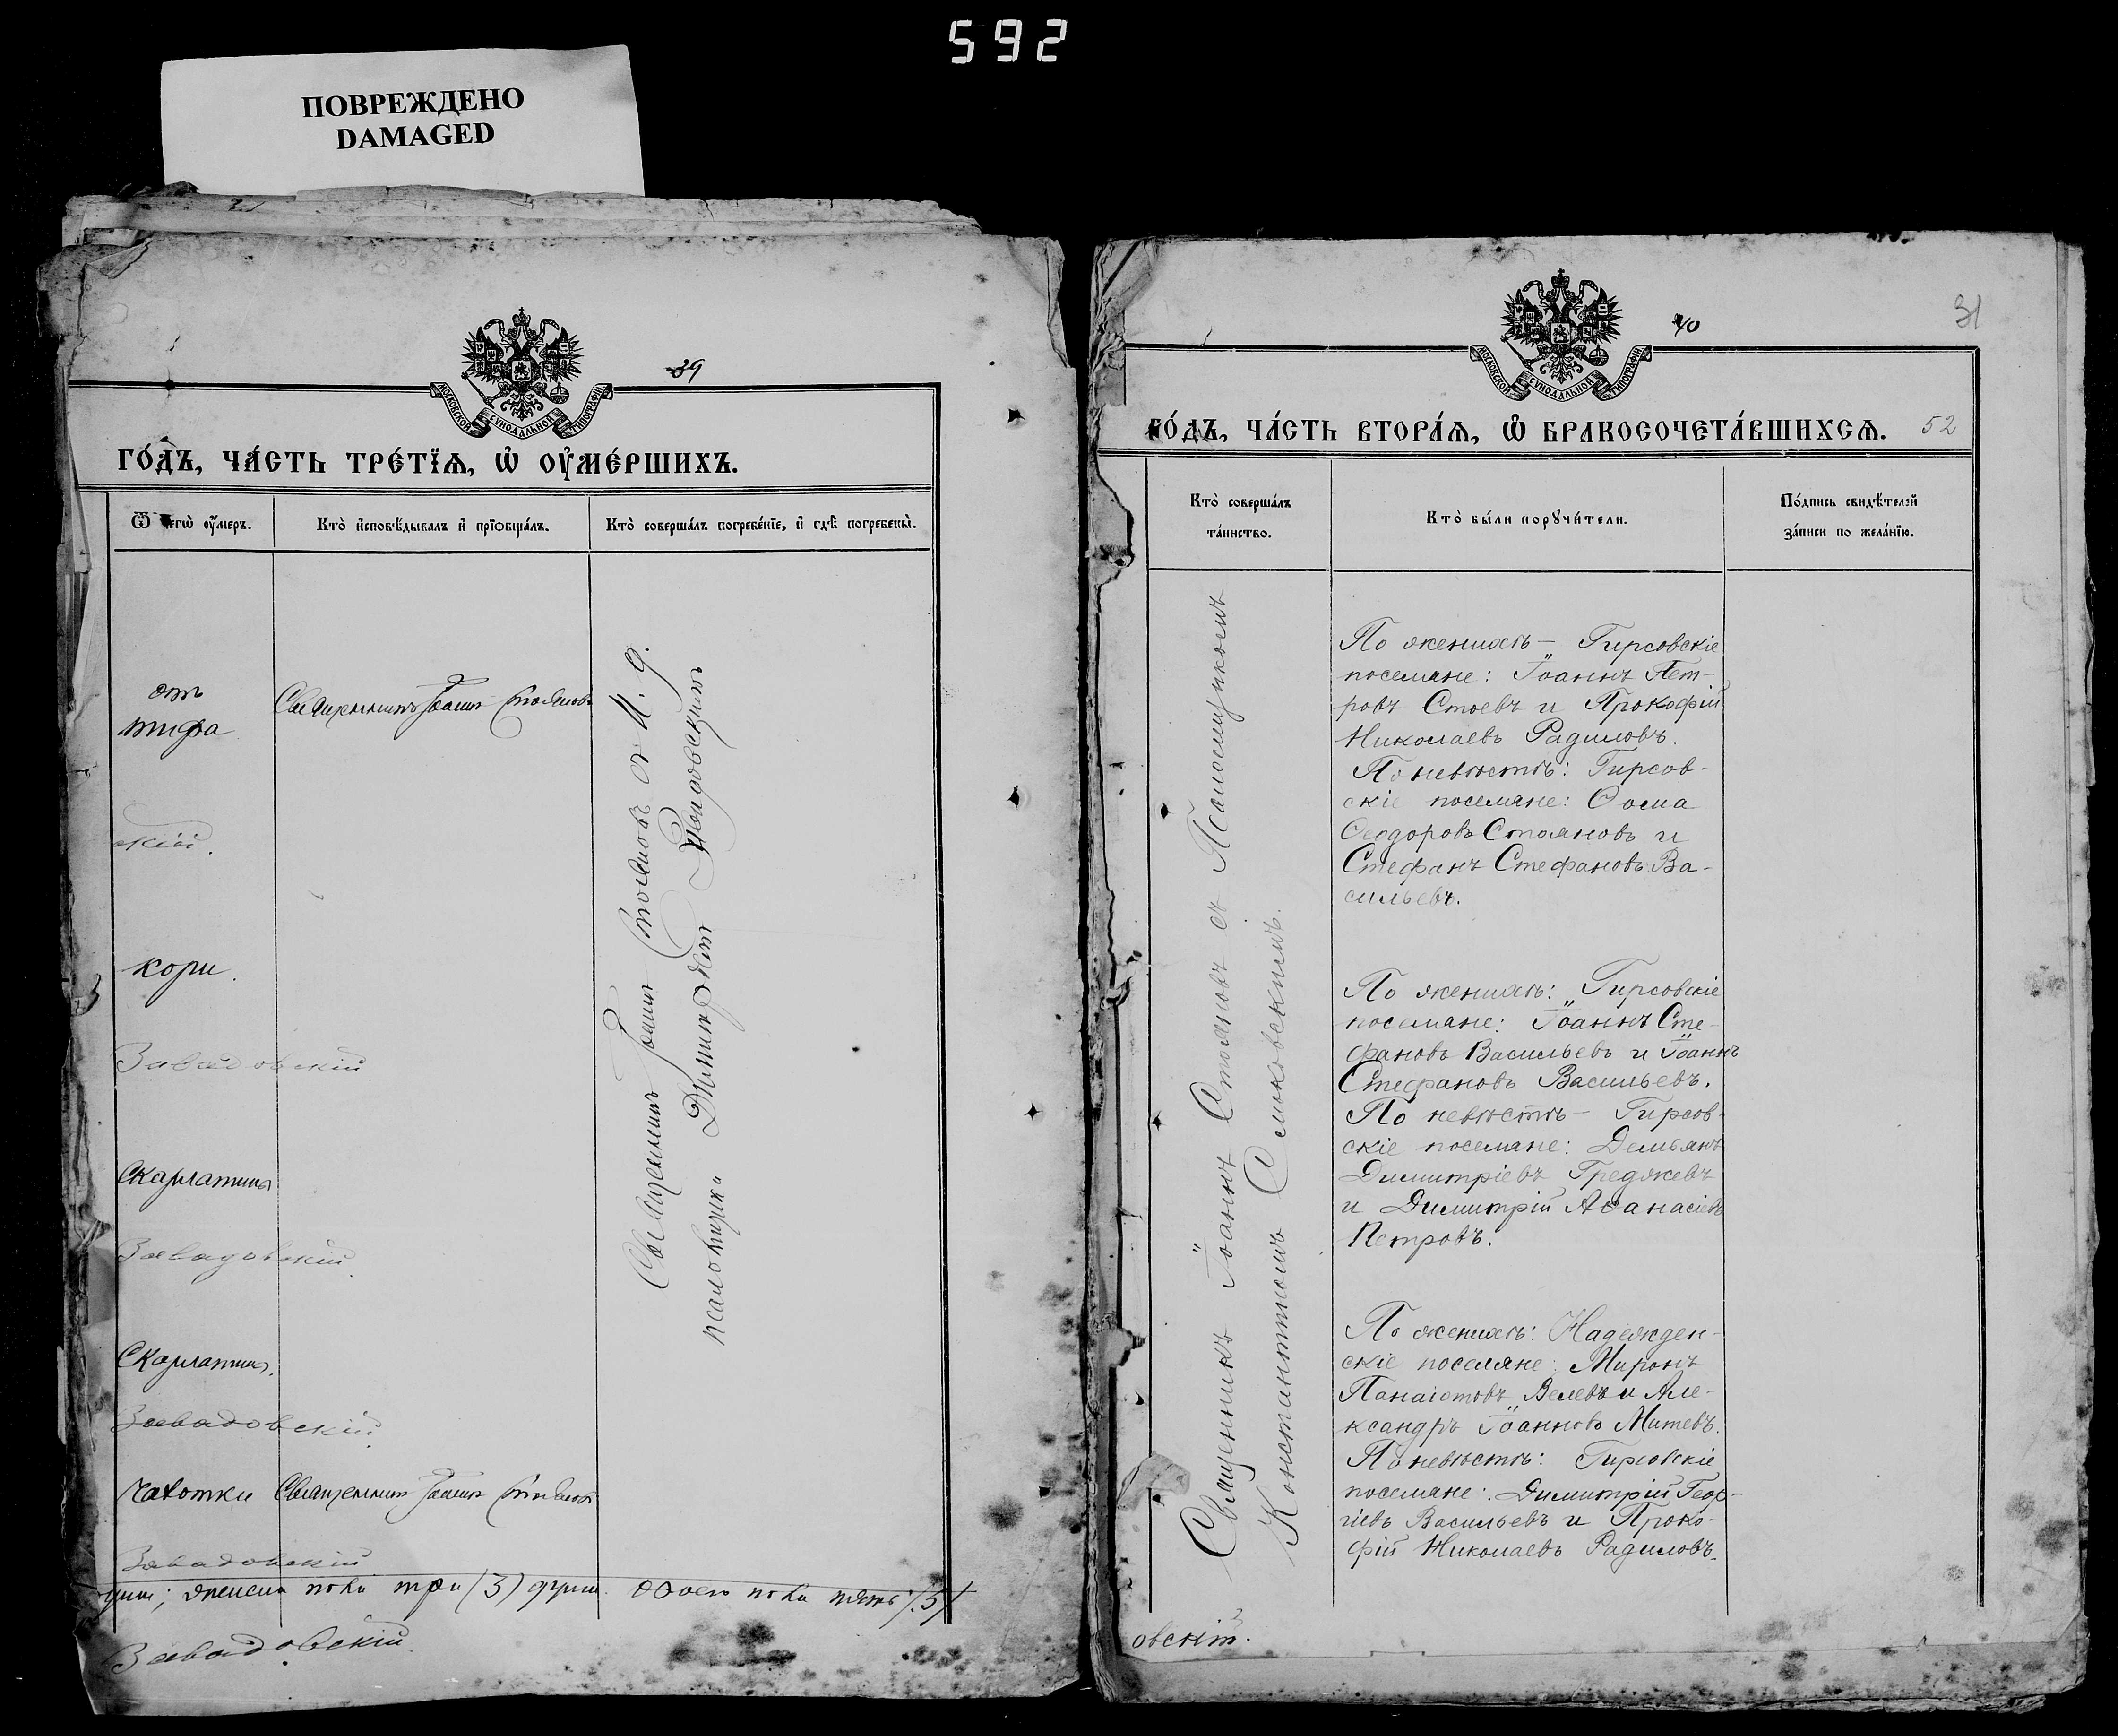 592
ПОВРЕЖДЕНО
DAMAGED
39
МОСКОВСКОЙ СѴНОДАЛЬНОЙ ТИПОГРАФІИ
ГО́ДЪ, ЧА́СТЬ ТРЕ́ТЇѦ, Ѡ҆ ОУ҆МЕ́РШИХЪ.
Ѿ чегѡ̀ оу҆́меръ.
Кто̀ и҆сповѣ́дывалъ и҆ прїѻбща́лъ.
Кто̀ соверша́лъ погребе́нїе, и҆ гдѣ̀ погребены̀.
отъ
тифа
Священникъ Іоаннъ Стояновъ
скій.
кори.
Завадовскій
Скарлатины
Завадовскій
Скарлатины.
Завадовскій
чахотки
Священникъ Іоаннъ Стояновъ
Завадовскій
Священникъ Іоаннъ Стояновъ
псаломщики
женска пола три (3) пола пять (5)
Завадовскій
40
31
МОСКОВСКОЙ СѴНОДАЛЬНОЙ ТИПОГРАФІИ
ГО́ДЪ, ЧА́СТЬ ВТОРА́Ѧ, Ѡ҆ БРАКОСОЧЕТА́ВШИХСѦ.
52
Кто̀ соверша́лъ
та́инство.
Кто̀ бы́ли порꙋчи́тели.
По́дпись свидѣ́телей
за́писи по жела́нїю.
Священникъ Іоаннъ Стояновъ съ Псаломщикомъ
Константиномъ
По женихѣ – Гирсовскіе
поселяне: Іоаннъ Пет-
ровъ Стоевъ и Прокофій
Николаевъ Радиловъ.
По невѣстѣ: Гирсов-
скіе поселяне: Ѳома
Ѳеодоровъ Стояновъ и
Стефанъ Стефановъ Ва-
сильевъ.
По женихѣ: Гирсовскіе
поселяне: Іоаннъ Сте-
фановъ Васильевъ и Іоаннъ
Стефановъ Васильевъ.
По невѣстѣ – Гирсов-
скіе поселяне: Демьянъ
Димитріевъ Греджевъ
и Димитрій Аѳанасіевъ
Петровъ.
По женихѣ: Надежден-
скіе поселяне: Миронъ
Панаіотовъ Велевъ и Але-
ксандръ Іоанновъ Митевъ.
По невѣстѣ: Гирсовскіе
поселяне: Димитрій Геор-
гіевъ Васильевъ и Проко-
фій Николаевъ Радиловъ.